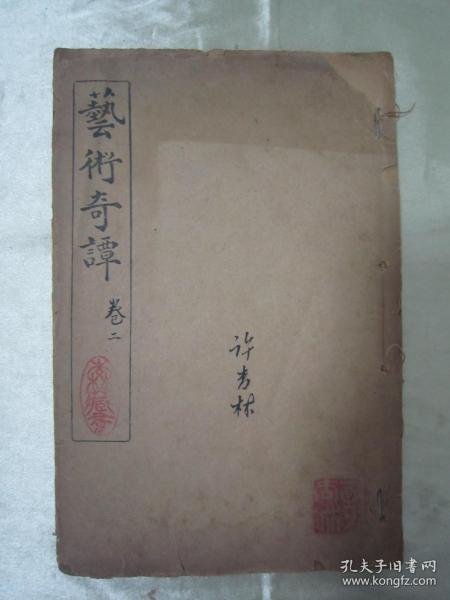 藝術奇譚
卷二
许秀林
孔夫子旧书网
www.kongfz.com